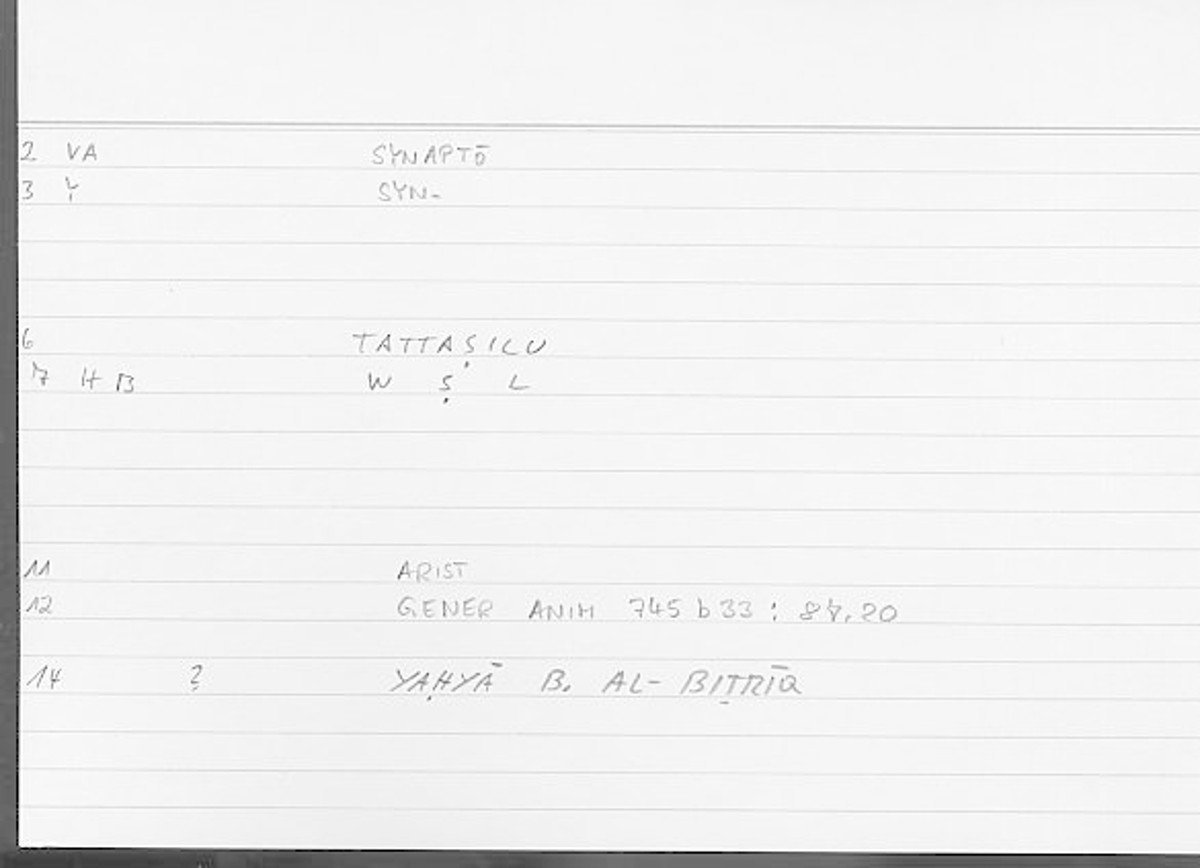 2 VA SYNAPTŌ
3 Y SYN-
6 TATTAṢILU
7 H B W Ṣ L
11 ARIST
12 GENER ANIM 745 b 33 : 84.20
14 ? YAḤYĀ B. AL-BIṬRĪQ